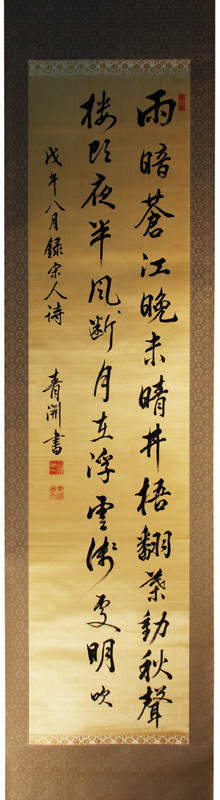 雨暗蒼江晚未晴井梧翻葉動秋聲
楼頭夜半風断月在浮雲浅處明吹
戊午八月録宋人詩
青書